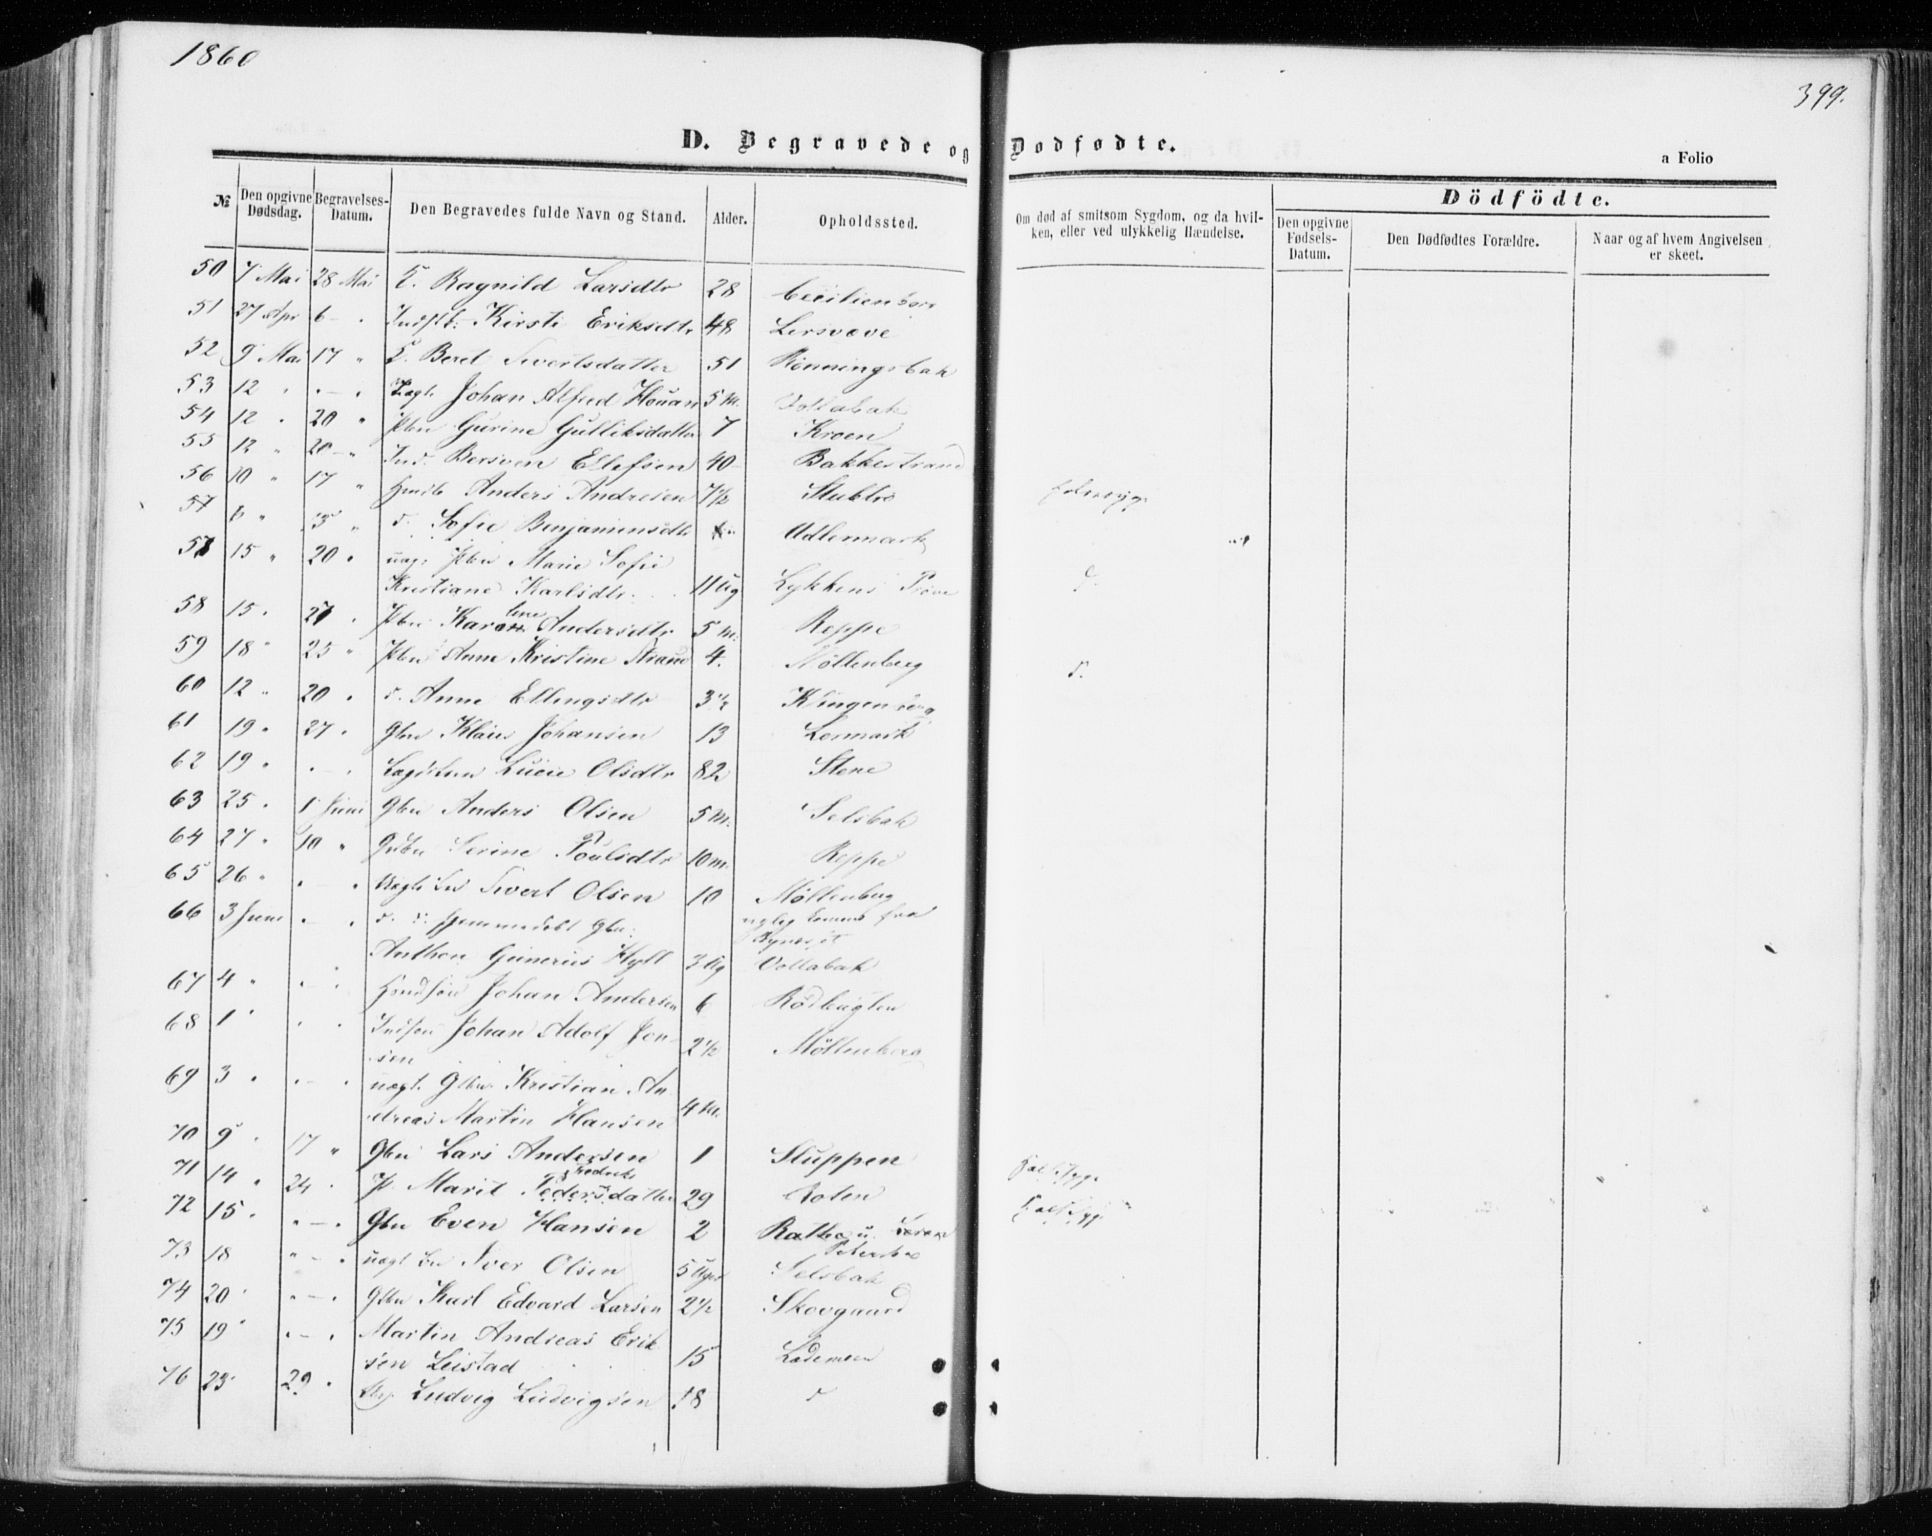 1860
399.
D. Begravede og Dødfødte.
a Folio
№ Den opgivne Dødsdag. Begravelses-Datum. Den Begravedes fulde Navn og Stand. Alder. Opholdssted. Om død af smitsom Sygdom, og da hvilken, eller ved ulykkelig Hændelse.
Dödfödte.
Den opgivne Fødsels-Datum. Den Dødfødtes Forældre. Naar og af hvem Angivelsen er skeet.
50 7 Mai 28 Mai Ragnild Larsdtr 28
51 27 Apr 6 - Kirsti Eriksdtr 48 Lersvæve
52 9 Mai 17 " Beret Sivertsdatter 51 Rønningsbak
53 12 " - Johan Alfred Houan 5 M. Vollabak
54 12 " 20 " Pbn Gurine Gulliksdatter 7 Kroen
55 12 " 20 " Ind. Bersven Ellefsen 40 Bakkestrand
56 10 " 17 " Anders Andresen 7½ Stubbe
57 6 " 3 " d. Sofie Benjaminsdtr Udlermark
57 15 " 20 " uægt Pbn Marie Sofie
Kristiane Karlsdtr. 11 Ug Lykkens Prøve d.
58 15 " 27 " Pbn Karen Andersdtr 5 M. Reppe
59 18 " 25 " Pbn Anne Kristine Strand 4. Møllenberg d.
60 12 " 20 " d. Anne Ellingsdtr 3½ Klingenberg
61 19 " 27 " Gbn Klaus Johansen 13 Lermark
62 19 " - Lucie Olsdtr 82 Stene
63 25 " 1 Juni Gbn Anders Olsen 5 M. Selsbak
64 27 " 10 " Serine Poulsdtr 10 M. Reppe
65 26 " - Sivert Olsen 10 Møllenberg
66 3 Juni - d. d. hjemmedøbt Gbn. fra
Anthon Gunerius Hyll 3 Ug Vollabak
67 4 " - Johan Andersen 6 Rødbugten
68 1 " - Johan Adolf Jon-
sen 2½ Møllenberg
69 3 " - uægt. Gbn Kristian An
dreas Martin Hansen 4 M.
70 9 " 17 " Gbn Lars Andersen 1 Sluppen
71 14 " 24 " P. Marit Pedersdatter 29 Halssyge
72 15 " - Gbn Even Hansen 2 Halssyge
73 18 " - uægt Iver Olsen 5 Uger Selsbak
74 20 " - Gbn Karl Edvard Larsen 2½ Skovgaard
75 19 " - Martin Andreas Erik
sen Leistad 15 Lademoen
76 23 " 29 " Ludvig Ludvigsen 18 d